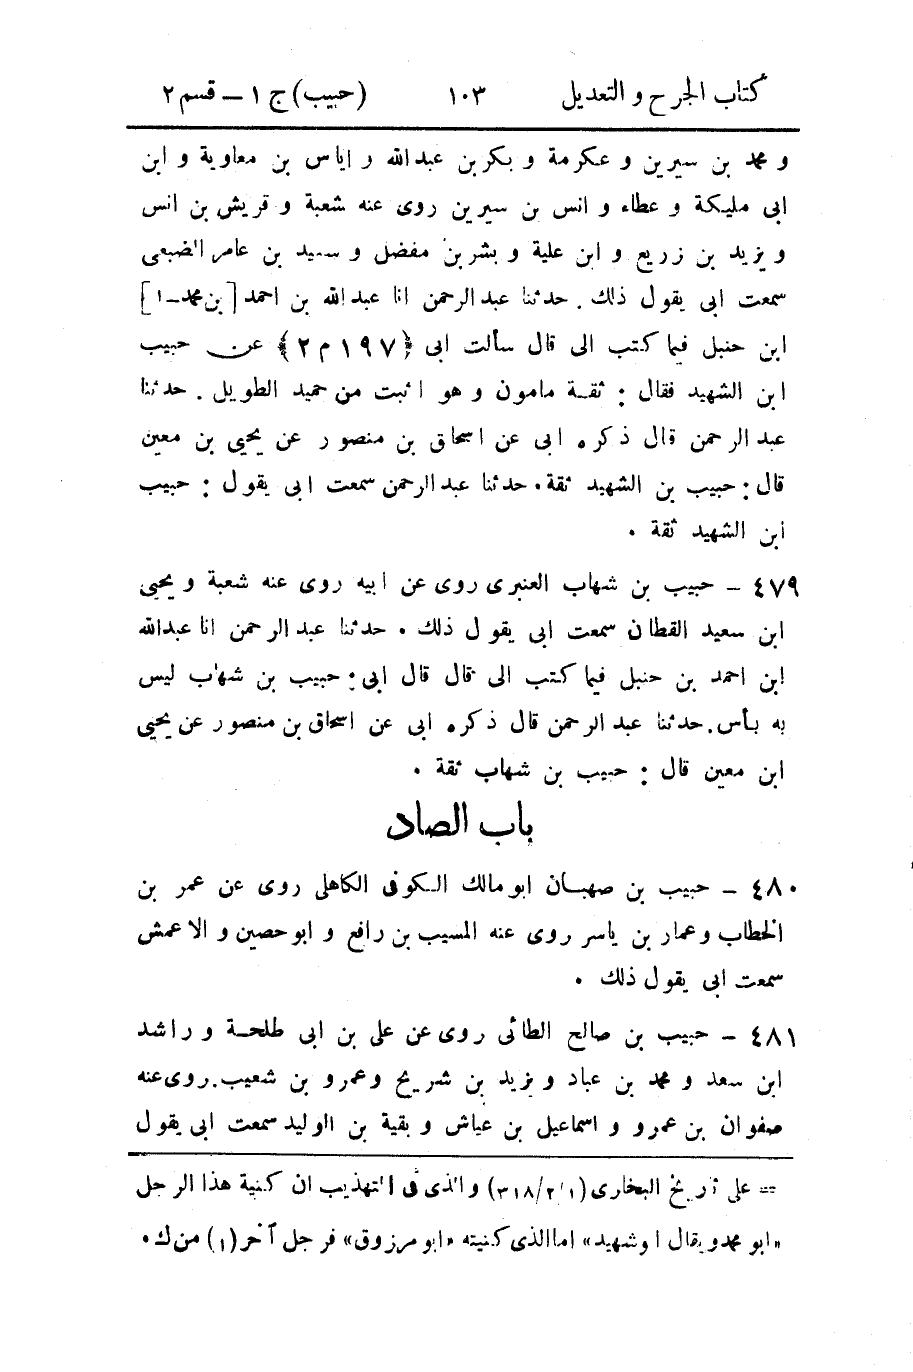 كتاب الجرح و التعديل ١٠٣ (حبيب) ج ١ – قسم ٢
و محمد بن سيرين و عكرمة و بكر بن عبد الله و اياس بن معاوية و ابن
ابى مليكة و عطاء و انس بن سيرين روى عنه شعبة و قريش بن انس
و يزيد بن زريع و ابن علية و بشر بن مفضل و سعيد بن عامر الضبعى
سمعت ابى يقول ذلك . حدثنا عبد الرحمن انا عبد الله بن احمد [بن محمد – ١]
ابن حنبل فيما كتب الى قال سألت ابى ﴿١٩٧ م ٢﴾ عن حبيب
ابن الشهيد فقال : ثقة مامون و هو اثبت من حميد الطويل . حدثنا
عبد الرحمن قال ذكره ابى عن اسحاق بن منصور عن يحيى بن معين
قال : حبيب بن الشهيد ثقة . حدثنا عبد الرحمن سمعت ابى يقول : حبيب
ابن الشهيد ثقة .
٤٧٩ – حبيب بن شهاب العنبرى روى عن ابيه روى عنه شعبة و يحيى
ابن سعيد القطان سمعت ابى يقول ذلك . حدثنا عبد الرحمن انا عبد الله
ابن احمد بن حنبل فيما كتب الى قال قال ابى : حبيب بن شهاب ليس
به بأس . حدثنا عبد الرحمن قال ذكره ابى عن اسحاق بن منصور عن يحيى
ابن معين قال : حبيب بن شهاب ثقة .
باب الصاد
٤٨٠ – حبيب بن صهبان ابو مالك الكوفى الكاهلى روى عن عمر بن
الخطاب و عمار بن ياسر روى عنه المسيب بن رافع و ابو حصين و الاعمش
سمعت ابى يقول ذلك .
٤٨١ – حبيب بن صالح الطائى روى عن على بن ابى طلحة و راشد
ابن سعد و محمد بن عباد و يزيد بن شريح و عمرو بن شعيب . روى عنه
صفوان بن عمرو و اسماعيل بن عياش و بقية بن الوليد سمعت ابى يقول
== على تاريخ البخارى (٣١٨/٢/١) والذى فى التهذيب ان كنية هذا الرجل
«ابو محمد ويقال ابو شهيد» اما الذى كنيته «ابو مرزوق» فرجل آخر (١) من ك .